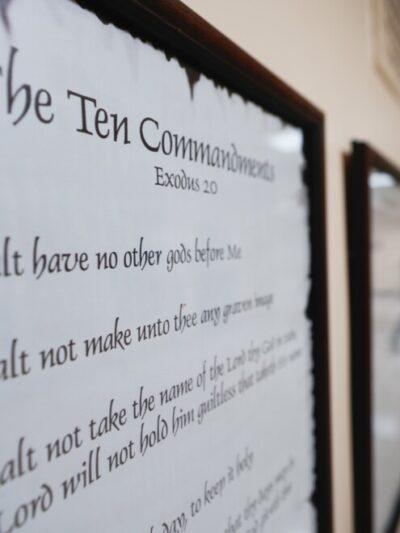 The Ten Commandments
Exodus 20
alt have no other gods before Me
alt not make unto thee any graven image
alt not take the name of the Lord thy God in vain,
Lord will not hold him guiltless that taketh his name
day, to keep it holy